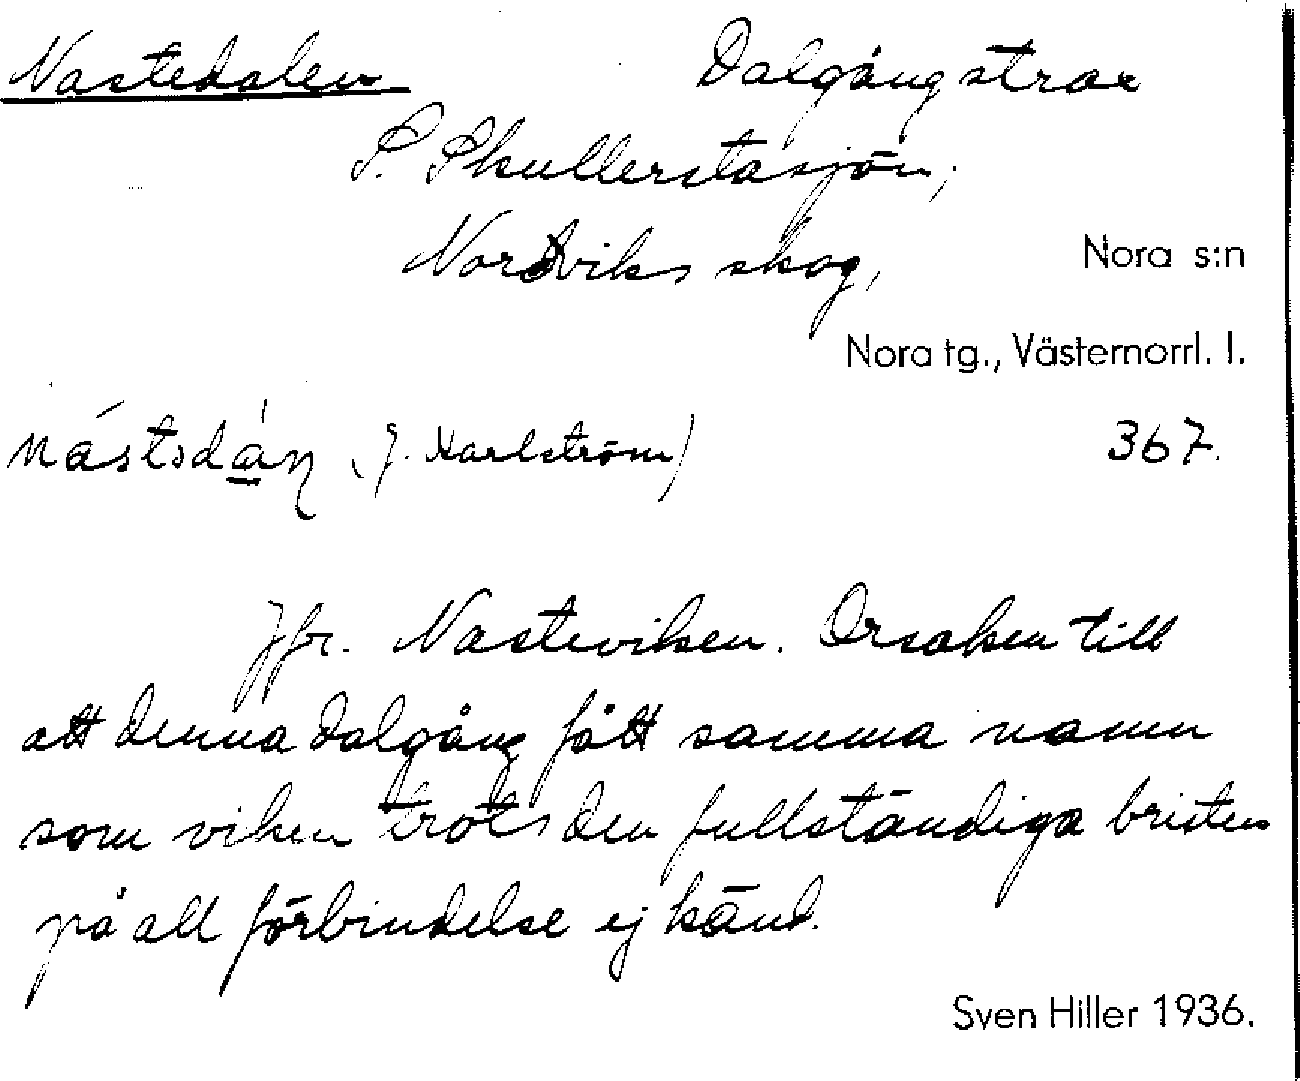 Nastedalen Dalgång strax
S. Skullerstasjön,
Nordviks skog, Nora s:n
Nora tg., Västernorrl. l.
nástsdán (J. Karlström) 367.
Jfr. Nasteviken. Orsaken till
att denna dalgång fått samma namn
som viken trots den fullständiga bristen
på all förbindelse ej känd.
Sven Hiller 1936.